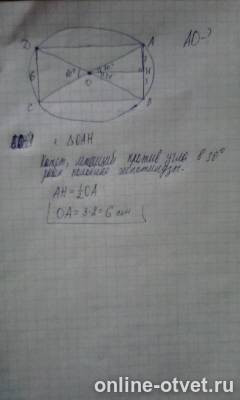 AO-?
D
A
6
60°
30°
H
3
O
C
B
ΔOAH
Катет, лежащий против угла в 30°
равен половине гипотенузы.
AH = ½ OA
OA = 3·2 = 6 см
online-otvet.ru